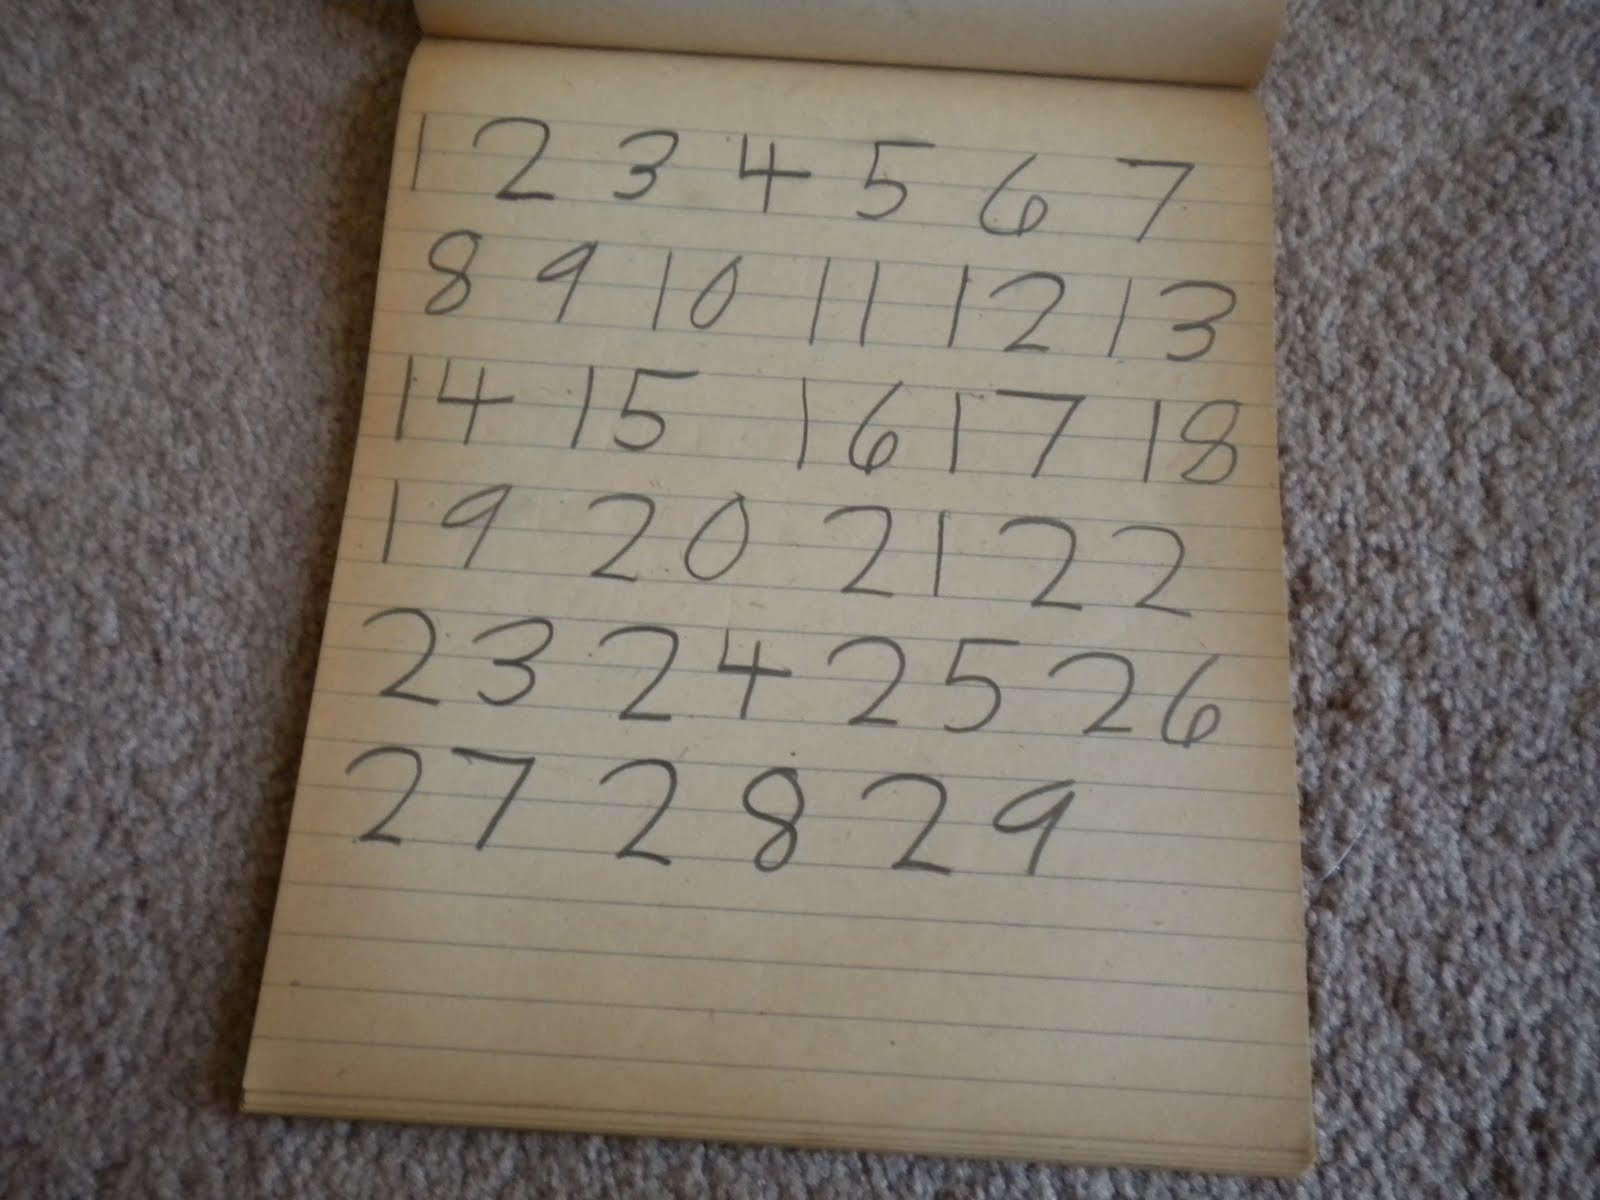 1 2 3 4 5 6 7
8 9 10 11 12 13
14 15 16 17 18
19 20 21 22
23 24 25 26
27 28 29